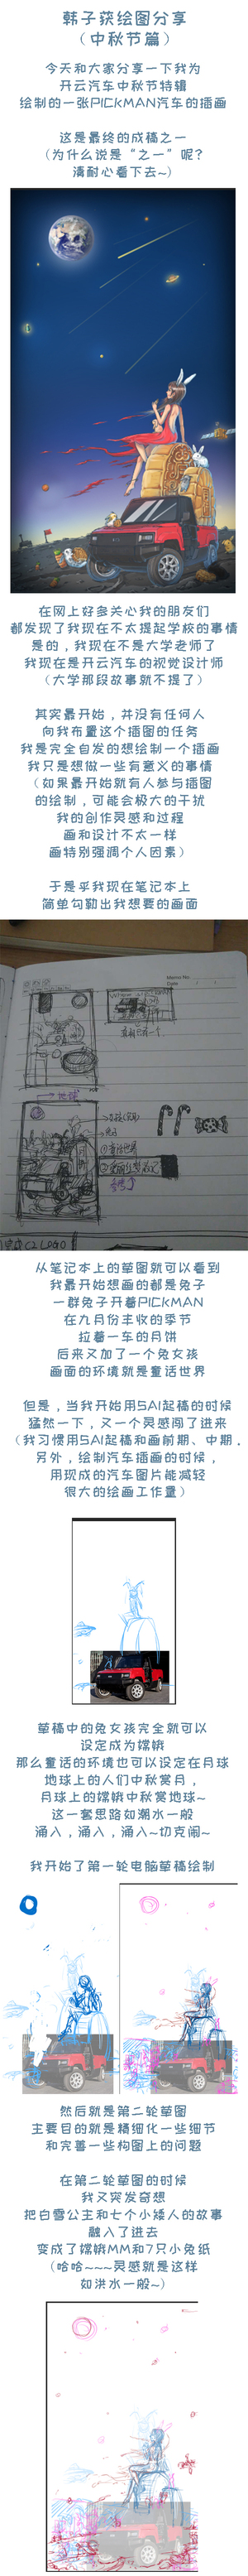 韩子荻绘图分享
（中秋节篇）
今天和大家分享一下我为
开云汽车中秋节特辑
绘制的一张PICKMAN汽车的插画
这是最终的成稿之一
（为什么说是“之一”呢？
清耐心看下去~）
在网上好多关心我的朋友们
都发现了我现在不太提起学校的事情
是的，我现在不是大学老师了
我现在是开云汽车的视觉设计师
（大学那段故事就不提了）
其实最开始，并没有任何人
向我布置这个插图的任务
我是完全自发的想绘制一个插画
我只是想做一些有意义的事情
（如果最开始就有人参与插图
的绘制，可能会极大的干扰
我的创作灵感和过程
画和设计不太一样
画特别强调个人因素）
于是乎我现在笔记本上
简单勾勒出我想要的画面
Memo No.
Date
地球
从笔记本上的草图就可以看到
我最开始想画的都是兔子
一群兔子开着PICKMAN
在九月份丰收的季节
拉着一车的月饼
后来又加了一个兔女孩
画面的环境就是童话世界
但是，当我开始用SAI起稿的时候
猛然一下，又一个灵感闯了进来
（我习惯用SAI起稿和画前期、中期．
另外，绘制汽车插画的时候，
用现成的汽车图片能减轻
很大的绘画工作量）
草稿中的兔女孩完全就可以
设定成为嫦娥
那么童话的环境也可以设定在月球
地球上的人们中秋赏月，
月球上的嫦娥中秋赏地球~
这一套思路如潮水一般
涌入，涌入，涌入~切克闹~
我开始了第一轮电脑草稿绘制
然后就是第二轮草图
主要目的就是精细化一些细节
和完善一些构图上的问题
在第二轮草图的时候
我又突发奇想
把白雪公主和七个小矮人的故事
融入了进去
变成了嫦娥MM和7只小兔纸
（哈哈~~~灵感就是这样
如洪水一般~）